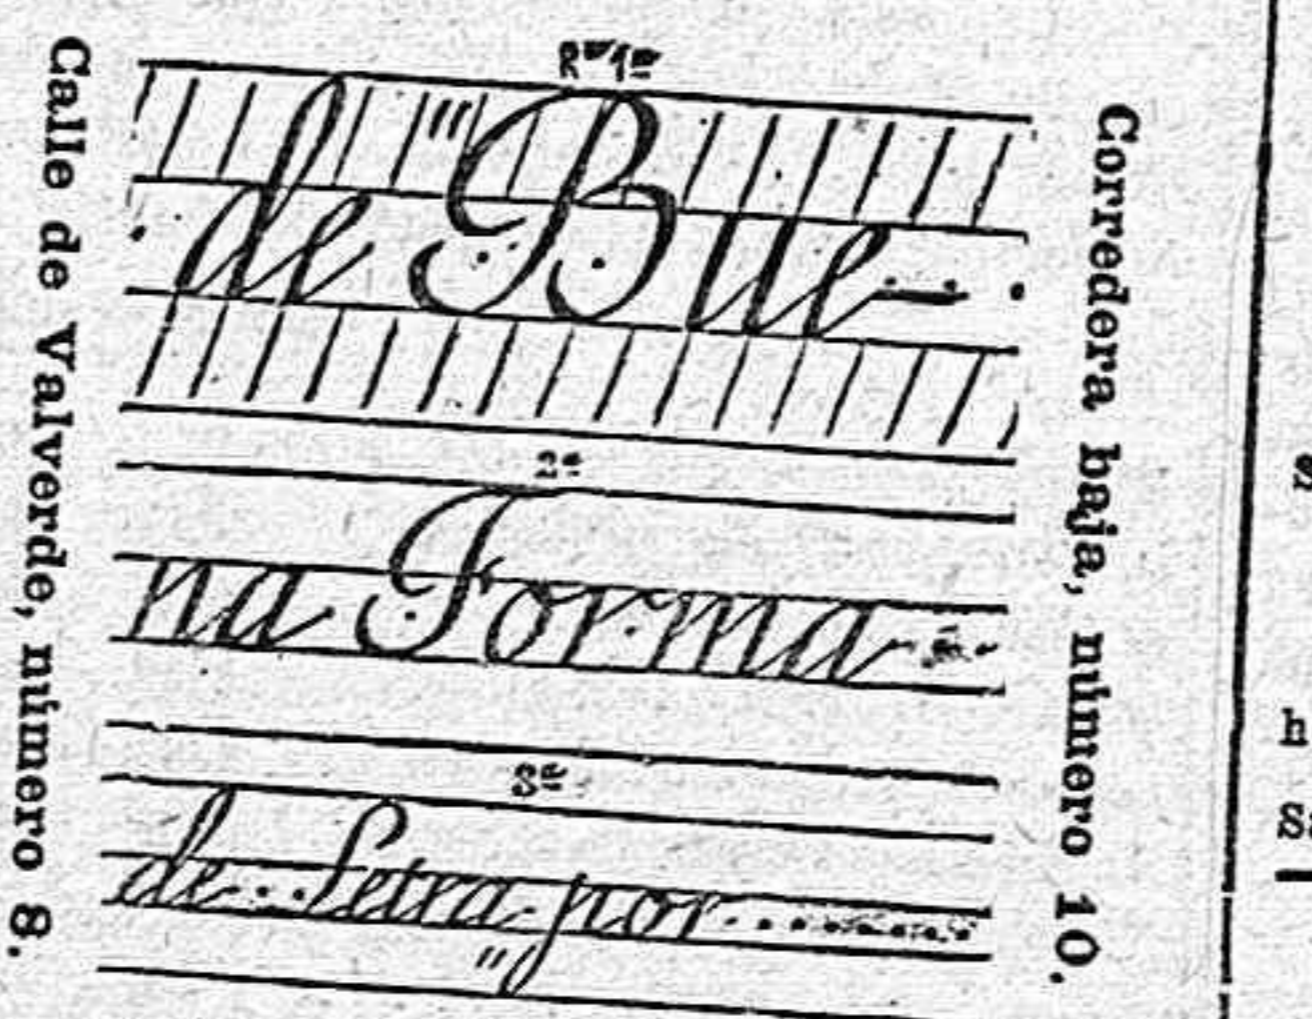 Calle de Valverde, número 8.
Rª 1ª
de "Bue-
2ª
na Forma
3ª
de Letra por
Corredera baja, número 10.